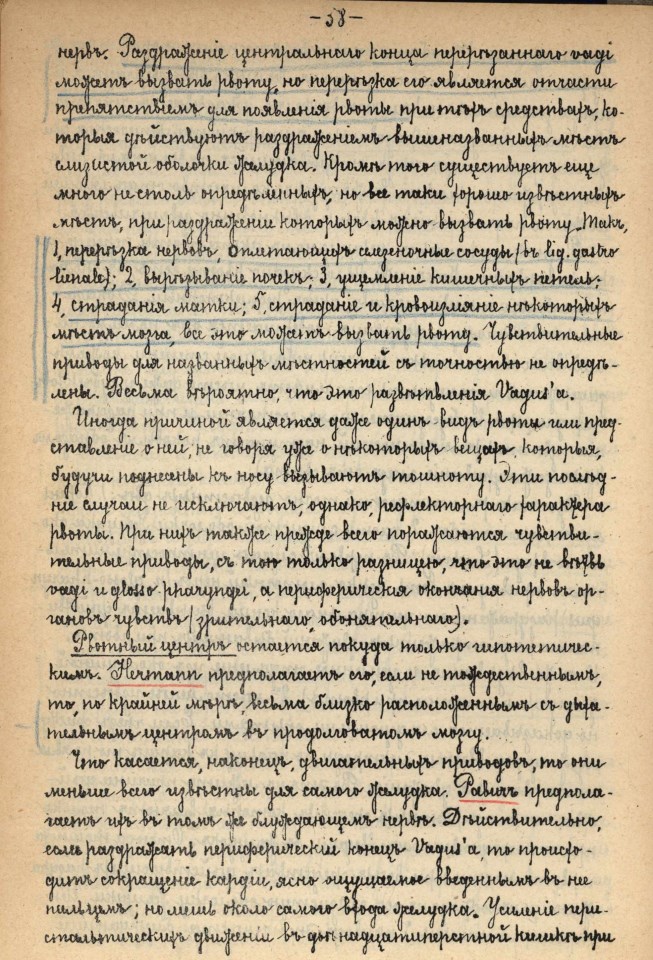 -58-
нервъ. Раздраженіе центральнаго конца перерѣзаннаго vagi
можетъ вызвать рвоту, но перерѣзка его является отчасти
препятствіемъ для появленія рвоты при тѣхъ средствахъ, ко-
торыя дѣйствуютъ раздраженіемъ вышеназванныхъ мѣстъ
слизистой оболочки желудка. Кромѣ того существуетъ еще
много не столь опредѣленныхъ, но все таки хорошо извѣстныхъ
мѣстъ, при раздраженіи которыхъ можно вызвать рвоту. Такъ,
1, перерѣзка нервовъ, оплетающихъ селезеночные сосуды (въ lig. gastro
lienale); 2, вырѣзываніе почекъ; 3, ущемленіе кишечныхъ петель;
4, страданія матки; 5, страданіе и кровоизліяніе нѣкоторыхъ
мѣстъ мозга, все это можетъ вызвать рвоту. Чувствительные
приводы для названныхъ мѣстностей съ точностью не опредѣ-
лены. Весьма вѣроятно, что это развѣтвленія Vagus'а.
Иногда причиной является даже одинъ видъ рвоты или пред-
ставленіе о ней, не говоря уже о нѣкоторыхъ вещахъ, которыя,
будучи поднесены къ носу вызываютъ тошноту. Эти послѣд-
ніе случаи не исключаютъ, однако, рефлекторнаго характера
рвоты. При нихъ также прежде всего поражаются чувстви-
тельные приводы, съ тою только разницею, что это не вѣтвь
vagi и glosso pharyngei, а периферическія окончанія нервовъ ор-
гановъ чувствъ (зрительнаго, обонятельнаго).
Рвотный центръ остается покуда только гипотетичес-
кимъ. Hermann предполагаетъ его, если не тождественнымъ,
то, по крайней мѣрѣ, весьма близко расположеннымъ съ дыха-
тельнымъ центромъ въ продолговатомъ мозгу.
Что касается, наконецъ, двигательныхъ приводовъ, то они
меньше всего извѣстны для самого желудка. Равичъ предпола-
гаетъ ихъ въ томъ же блуждающемъ нервѣ. Дѣйствительно,
если раздражать периферическій конецъ Vagus'а, то происхо-
дитъ сокращеніе кардіи, ясно ощущаемое введеннымъ въ нее
пальцемъ; но лишь около самого входа желудка. Усиленіе пери-
стальтическихъ движеній въ двѣнадцатиперстной кишкѣ при